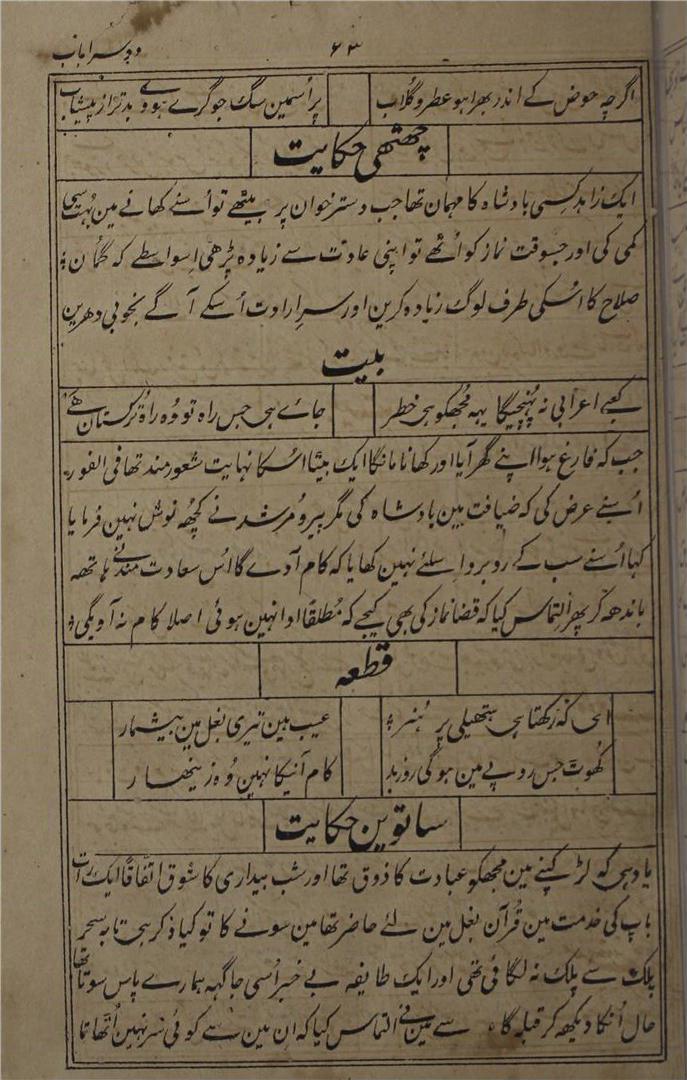 دوسرا باب
۶۳
اگرچہ حوض کے اندر بھرا ہو عطر و گلاب پر اُسمین سگ جو گرے ہووے بدتر از پیشاب
چھٹھی حکایت
ایک زاہد کسی بادشاہ کا مہمان تھا جب دسترخوان پر بیٹھے تو اُسنے کھانے مین بہت سی
کمی کی اور جسوقت نماز کو اُٹھے تو اپنی عادت سے زیادہ پڑھی اِسواسطے کہ گمان
صلاح کا اُسکی طرف لوگ زیادہ کرین اور سر ارادت اُسکے آگے بخوبی دھرین
بیت
کعبے اعرابی نہ پہنچیگا یہہ مجھکو ہی خطر جاے ہی جس راہ تو وُہ راہ ترکستان ہے
جب کہ فارغ ہوا اپنے گھر آیا اور کھانا مانگا ایک بیٹا اُسکا نہایت شعورمند تھا فی الفور
اُسنے عرض کی کہ ضیافت مین بادشاہ کی مگر پیر و مرشد نے کچھہ نوش نہین فرمایا
کہا اُسنے سب کے روبرو اِسلئے نہین کھایا کہ کام آدے گا اُس سعادت مند نے ہاتھہ
باندھہ کر پھر التماس کیا کہ قضا نماز کی بھی کیجے کہ مُطلقًا ادا نہین ہوئی اصلا کام نہ آویگی
قطعہ
ای کہ رکھتا ہی ہتھیلی پر ہُنر عیب ہین تیری بغل مین بیشمار
کھوٹ جس روپے مین ہوگی روز بد کام آنیکا نہین وُہ زینھار
ساتوین حکایت
یاد ہی کہ لڑکپنے مین مجھکو عبادت کا ذوق تھا اور شب بیداری کا شوق اتفاقًا ایک رات
باپ کی خدمت مین قُرآن بغل مین لئے حاضر تھا مین سونے کا تو کیا ذکر ہی تا بہ سحر
پلک سے پلک نہ لگائی تھی اور ایک طایفہ بے خبر اُسی جاگہہ ہمارے پاس سوتا تھا
حال اُنکا دیکھہ کر قبلہ گاہ سے مین نے التماس کیا کہ ان مین سے کوئی سر نہین اُٹھاتا